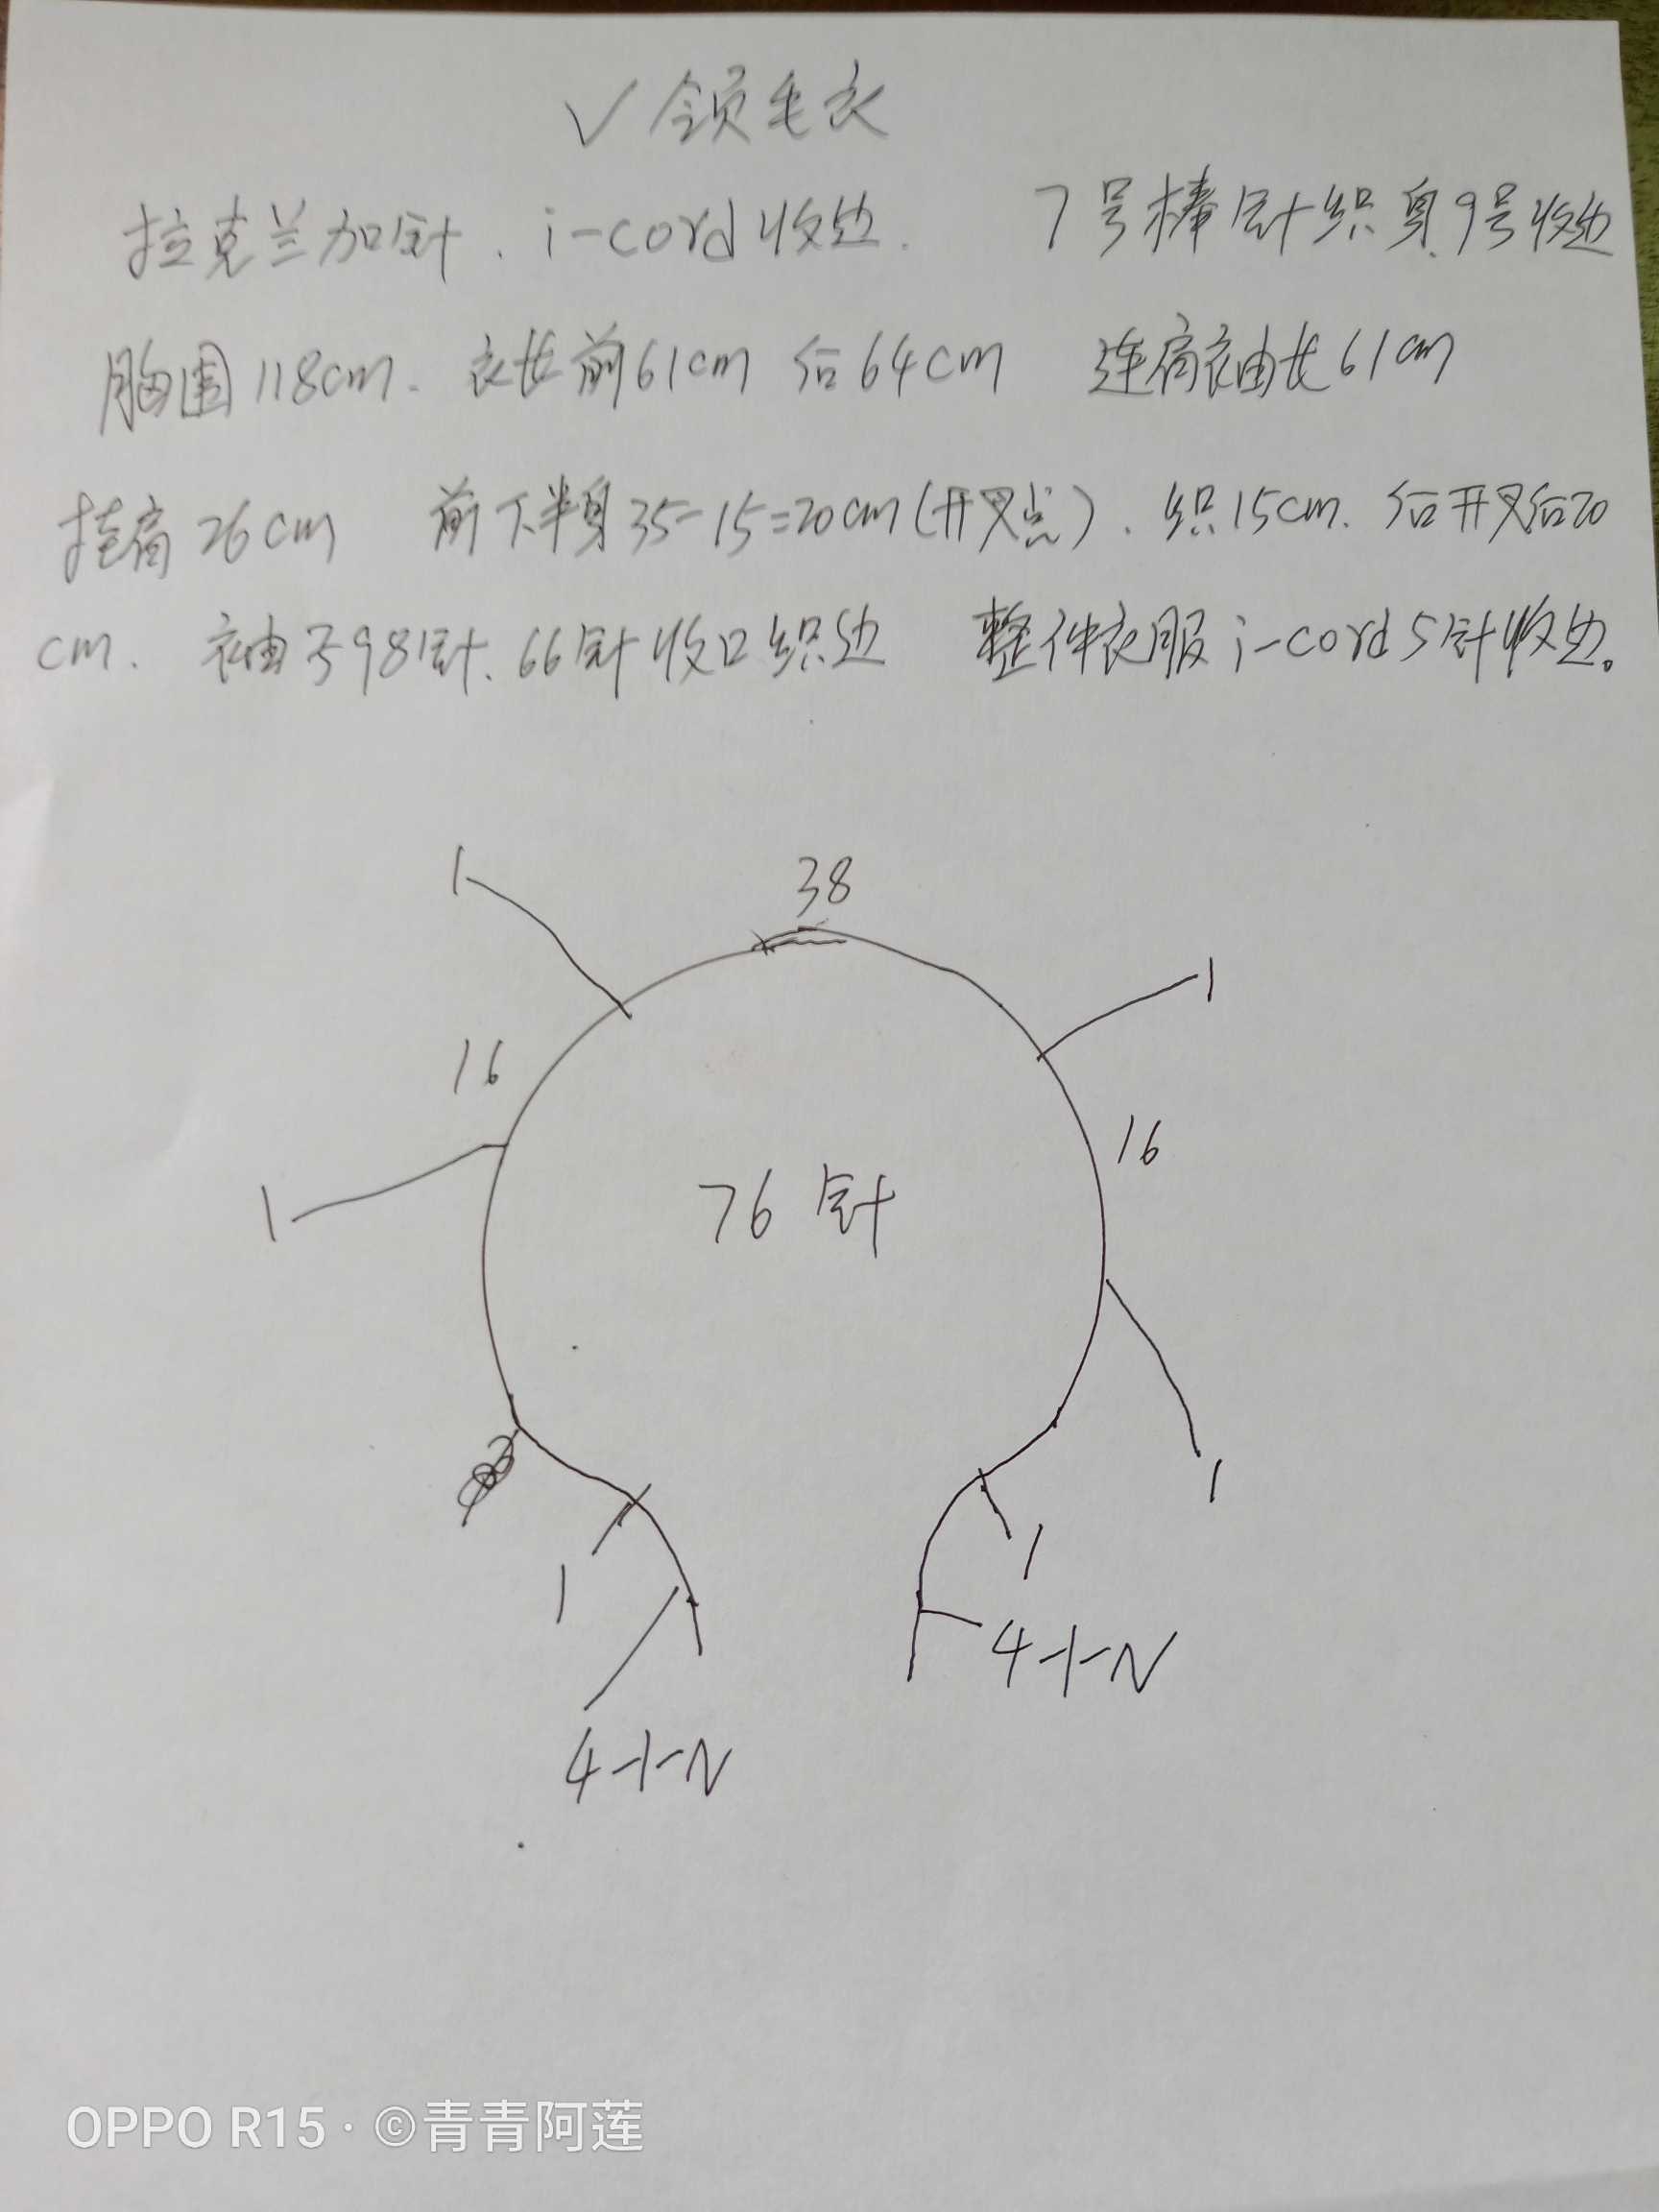 V领毛衣
拉克兰加针. i-cord收边. 7号棒针织身.9号收边
胸围118cm. 衣长前61cm 后64cm 连肩衣袖长61cm
挂肩26cm 前下半身35-15=20cm(开叉点). 织15cm. 后开叉后20
cm. 衣袖子98针. 66针收口织边 整件衣服i-cord5针收边。
1
38
1
16
16
1
76针
1
1
1
4-1-N
4-1-N
OPPO R15 · ©青青阿莲